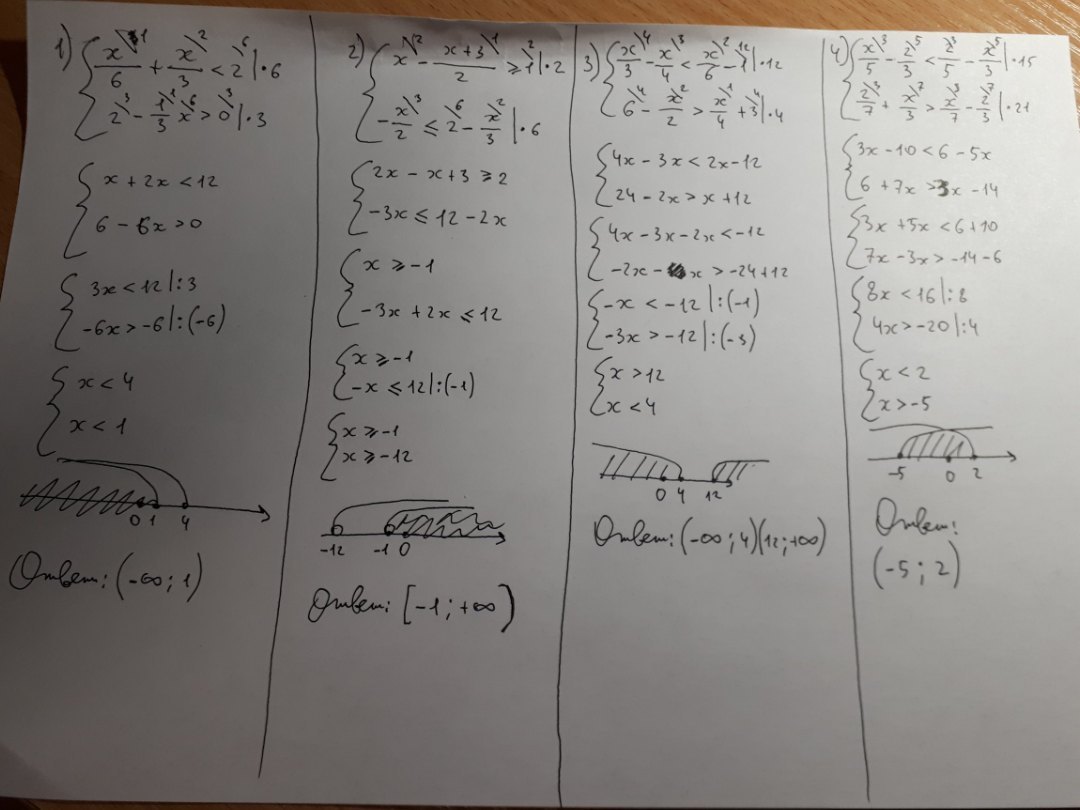 1) { x\1/6 + x\2/3 < 2\6 | · 6
2\3 - 1\1/3 x\6 > 0\3 | · 3
{ x + 2x < 12
6 - 6x > 0
{ 3x < 12 | : 3
-6x > -6 | : (-6)
{ x < 4
x < 1
0 1 4
Ответ: (-∞; 1)
2) { x\2 - x+3\1/2 ⩾ 1\2 | · 2
-x\3/2 ⩽ 2\6 - x\2/3 | · 6
{ 2x - x + 3 ⩾ 2
-3x ⩽ 12 - 2x
{ x ⩾ -1
-3x + 2x ⩽ 12
{ x ⩾ -1
-x ⩽ 12 | : (-1)
{ x ⩾ -1
x ⩾ -12
-12 -1 0
Ответ: [-1; +∞)
3) { x\4/3 - x\3/4 < x\2/6 - 1\12 | · 12
6\4 - x\2/2 > x\1/4 + 3\4 | · 4
{ 4x - 3x < 2x - 12
24 - 2x > x + 12
{ 4x - 3x - 2x < -12
-2x - x > -24 + 12
{ -x < -12 | : (-1)
-3x > -12 | : (-3)
{ x > 12
x < 4
0 4 12
Ответ: (-∞; 4)(12; +∞)
4) { x\3/5 - 2\5/3 < 2\3/5 - x\5/3 | · 15
2\3/7 + x\7/3 > x\3/7 - 2\7/3 | · 21
{ 3x - 10 < 6 - 5x
6 + 7x > 3x - 14
{ 3x + 5x < 6 + 10
7x - 3x > -14 - 6
{ 8x < 16 | : 8
4x > -20 | : 4
{ x < 2
x > -5
-5 0 2
Ответ:
(-5; 2)